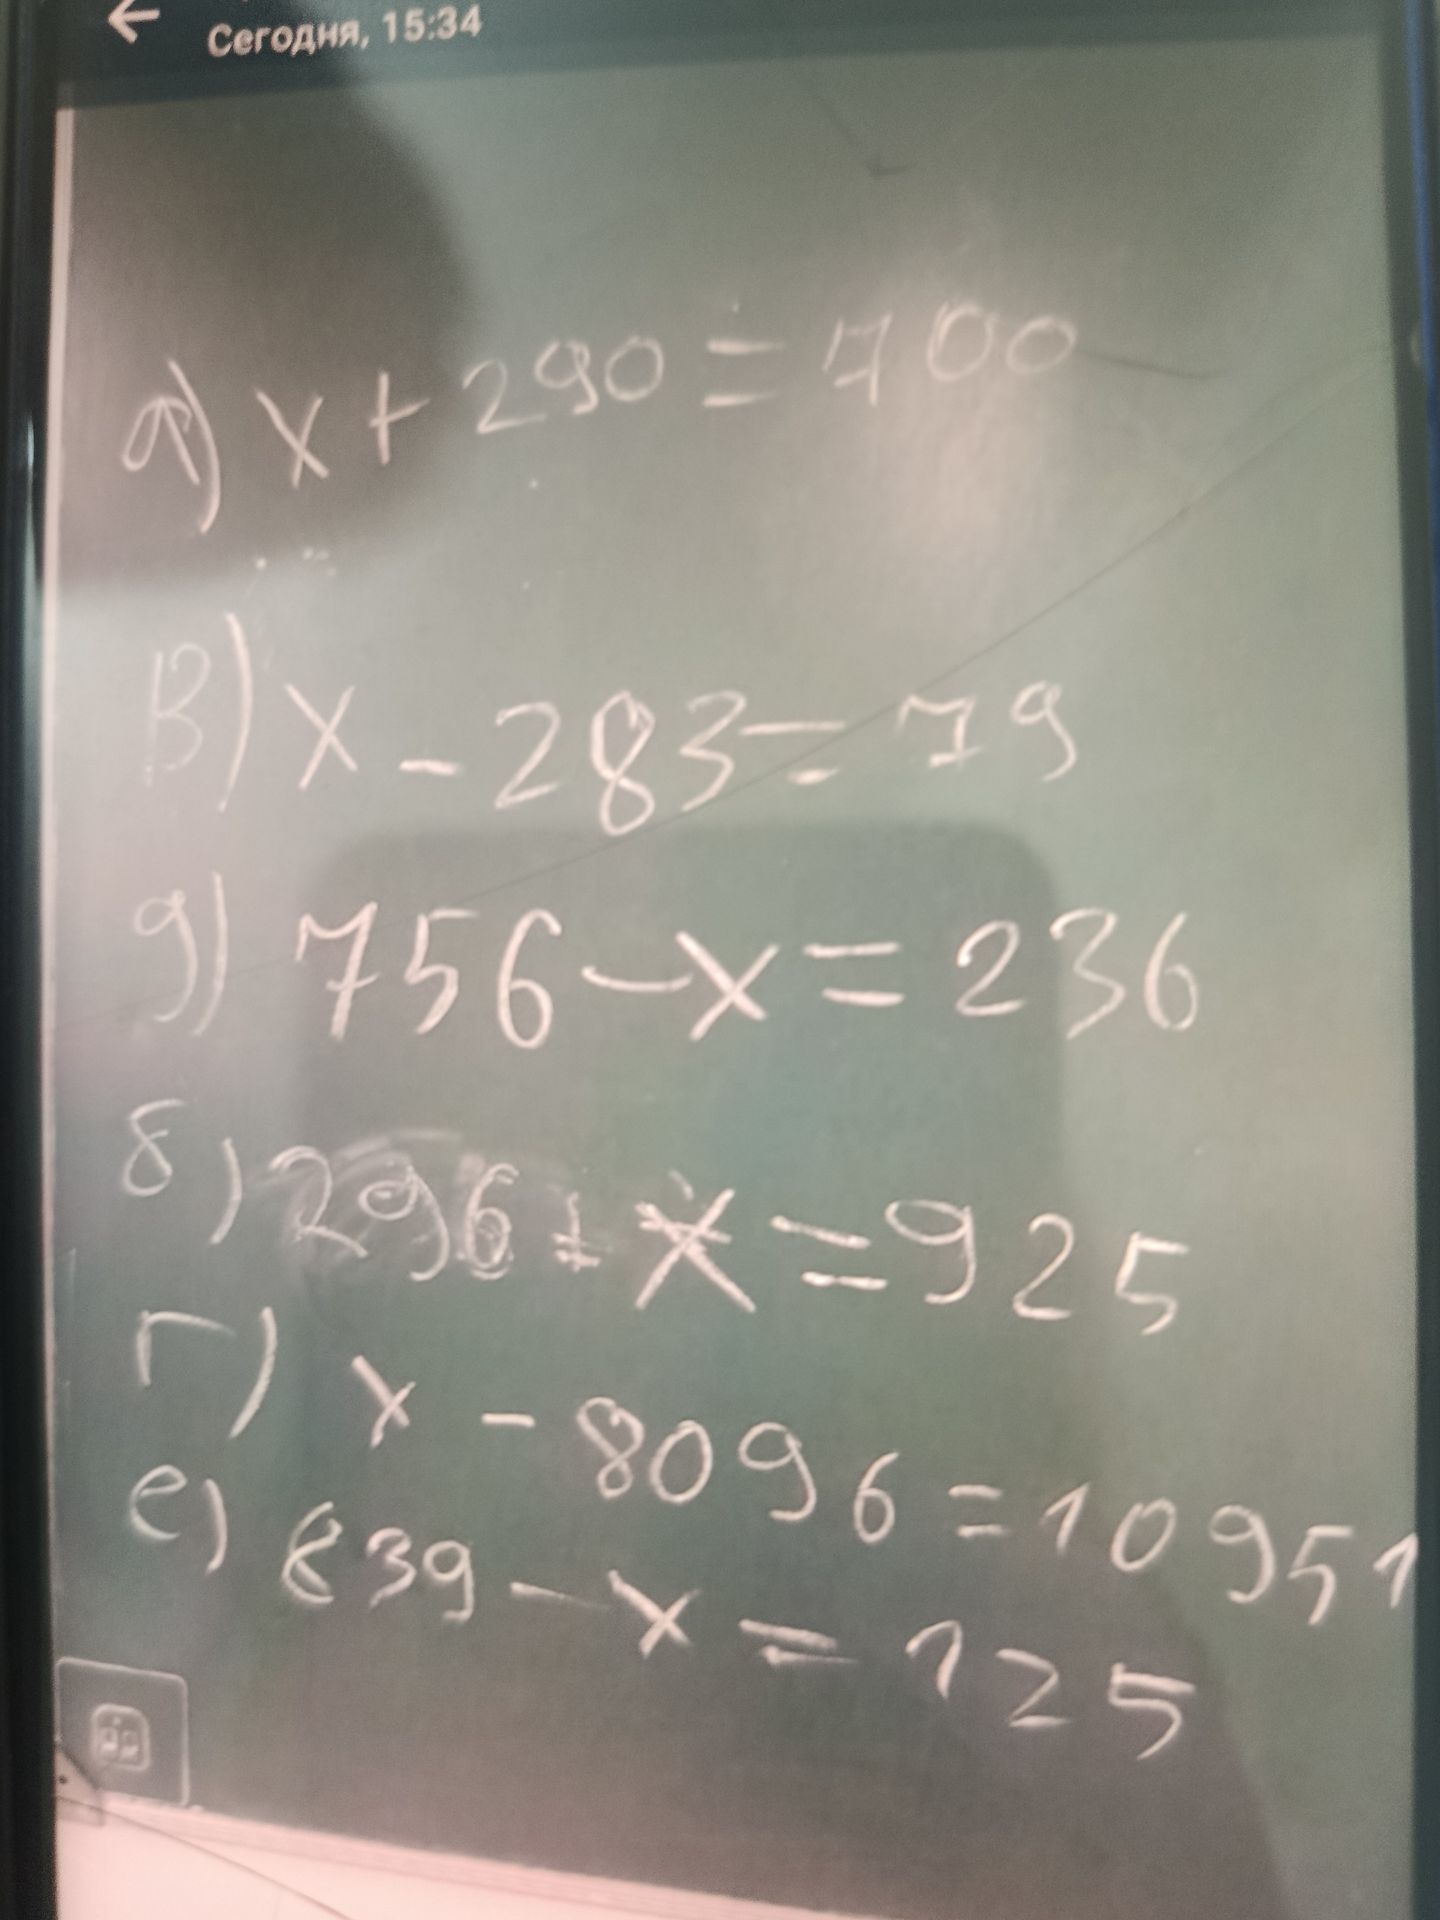 Сегодня, 15:34
а) x + 290 = 700
в) x - 283 = 79
д) 756 - x = 236
б) 296 + x = 925
г) x - 8096 = 10951
е) 839 - x = 125